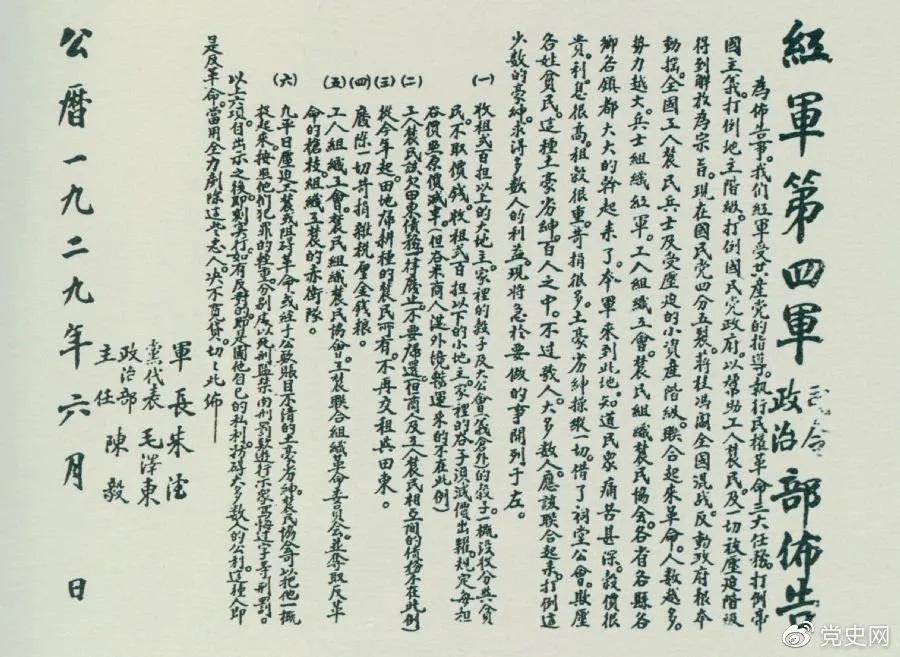 紅軍第四軍司令政治部佈告
為佈告事。我們紅軍受共產党的指導。執行民權革命三大任務。打倒帝
國主義。打倒地主階級。打倒國民党政府。以幫助工人農民。及一切被壓迫階級
得到解放為宗旨。現在國民党四分五裂。蔣桂馮閻全國混战。反動政府根本
動摇。全國工人農民兵士及受壓迫的小資產階級。聯合起來革命。人數越多。
势力越大。兵士組織紅軍。工人組織工會。農民組織農民協会。各省各縣各
鄉各镇都大大的幹起來了。本軍來到此地。知道民衆痛苦甚深。穀價很
貴。利息很高。租穀很重。苛捐很多。土豪劣紳操縱一切。借了祠堂公會。欺壓
各姓貧民。這種土豪劣紳。百人之中。不过数人。大多数人。應該聯合起來。打倒這
少數的豪紳。求得多数人的利益。現將急於要做的事開列于左。
(一)收租弍百担以上的大地主。家裡的穀子及大公會(義倉外)的穀子。一概没收分與貧
民。不取價钱。收租弍百担以下的小地主。家裡的谷子须減價出糶。規定每担
谷價照原價減半。(但谷米商人從外境輓運來的不在此例)
(二)工人農民該欠田東債務。一律廢止。不要歸還。(但商人及工人農民相互間的債務不在此例)
(三)從今年起。田地歸耕種的農民所有。不再交租與田東。
(四)廢除一切苛捐雜稅厘金錢粮。
(五)工人組織工會。農民組織農民協會。工農聯合組織革命委員会。並奪取反革
命的槍枝。組織工農的赤衛隊。
(六)凡平日壓迫工農或阻碍革命。或經手公款賬目不清的土豪劣紳。農民協會可以把他一概
捉起來。按照他们犯罪的輕重。分別处以死刑監禁肉刑罰款遊行示衆寫悔过字等刑罰。
以上六項自出示之後。即刻实行。如有反對的。即是圖他自己的私利。妨碍大多數人的公利。這種人即
是反革命。當用全力剷除這些人。决不寬貸。切切此佈
軍長 朱德
黨代表 毛澤東
政治部主任 陳毅
公曆一九二九年六月 日
党史网